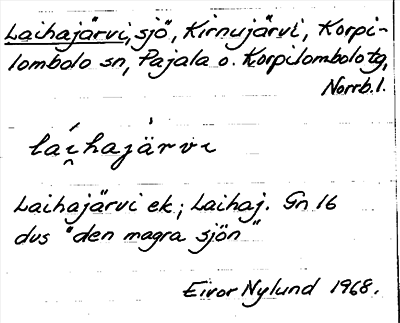 Laihajärvi, sjö, Kirnujärvi, Korpi-
lombolo sn, Pajala o. Korpilombolo tg,
Norrb. l.
lái̯hajà̈rvi
Laihajärvi ek.; Laihaj. Gn 16
dus "den magra sjön"
Eivor Nylund 1968.